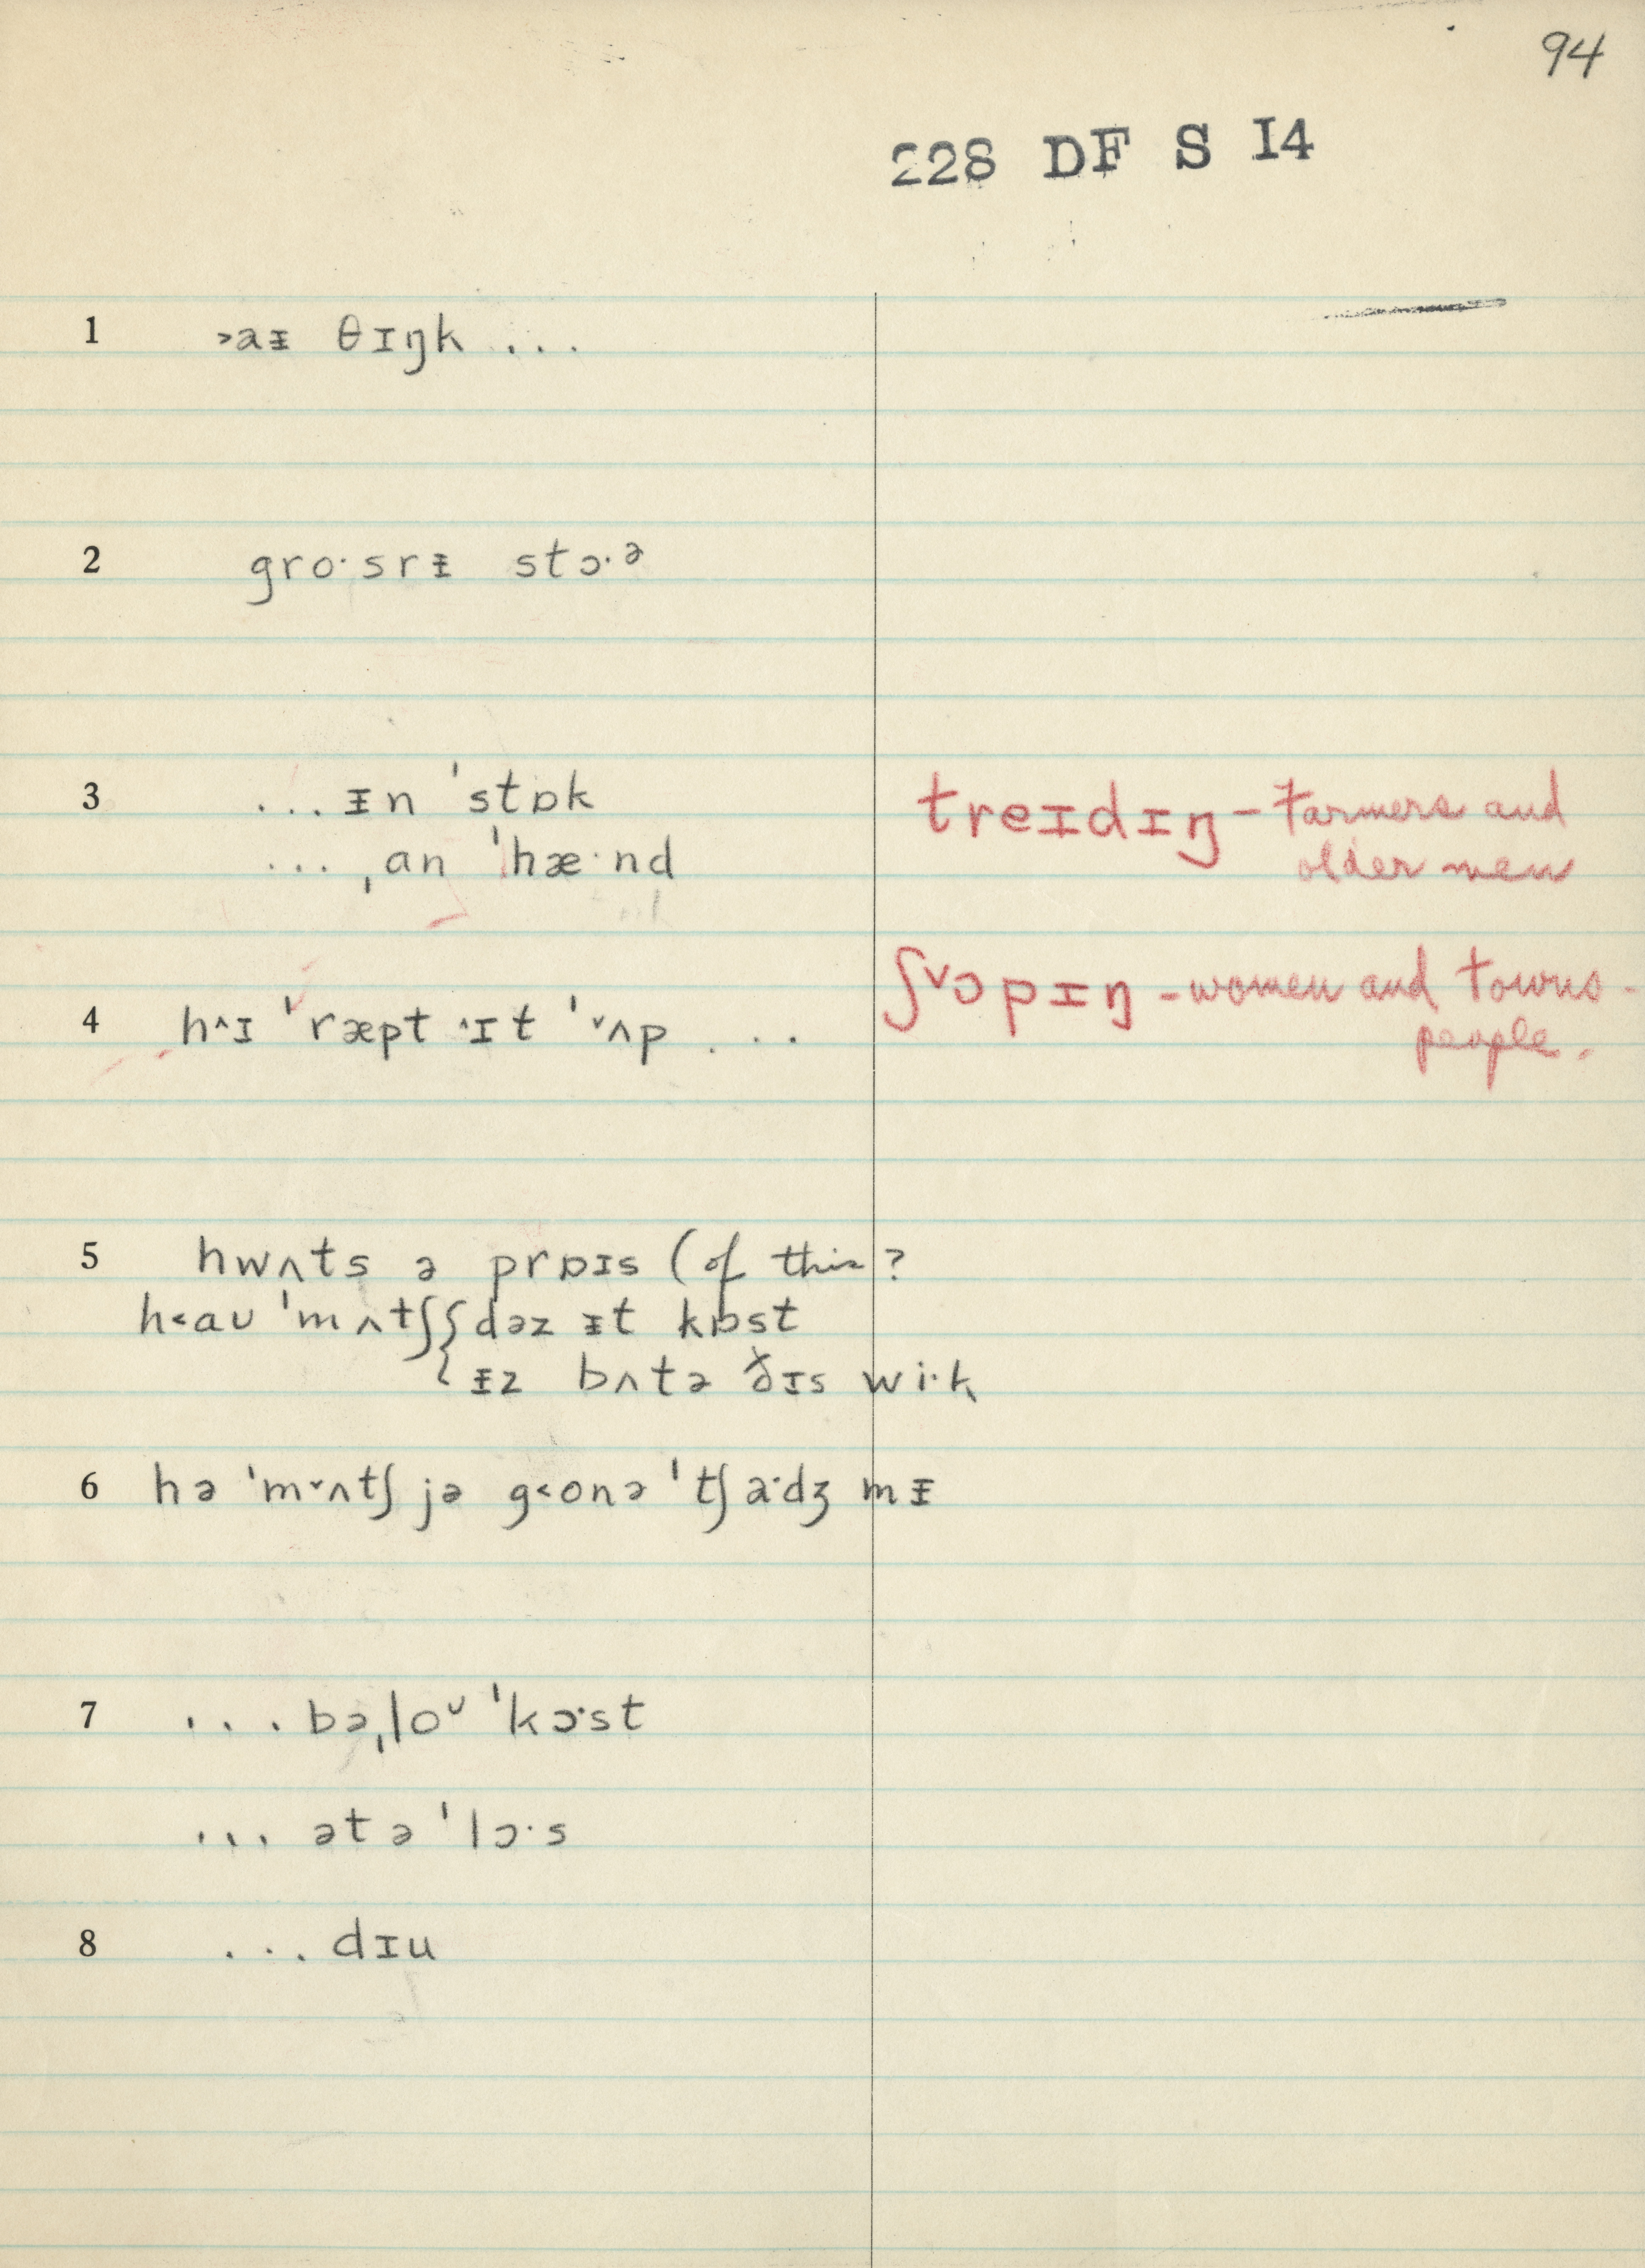 94
228 DF S I4
1 ˃aᵻ θɪŋk ...
2 gro·srᵻ stɔ·ᵊ
3 ...ᵻn ˈstɒk
... ˌan ˈhæ·nd
treɪdɪŋ – farmers and
older men
ʃ˅ɔpɪŋ – women and towns-
people.
4 h˄ɪ ˈræpt ˄ɪt ˈ˅ʌp ...
5 hwʌts ə prɒɪs (of this?
h˂aʊ ˈmʌtʃ { dəz ᵻt kɒst
{ ᵻz bʌtə ðɪs wi·k
6 hə ˈm˅ʌtʃ jə g˂onə ˈtʃa·dʒ mᵻ
7 ... bəˌloᶷ ˈkɔ·st
... ət ə ˈlɔ·s
8 ... dɪu